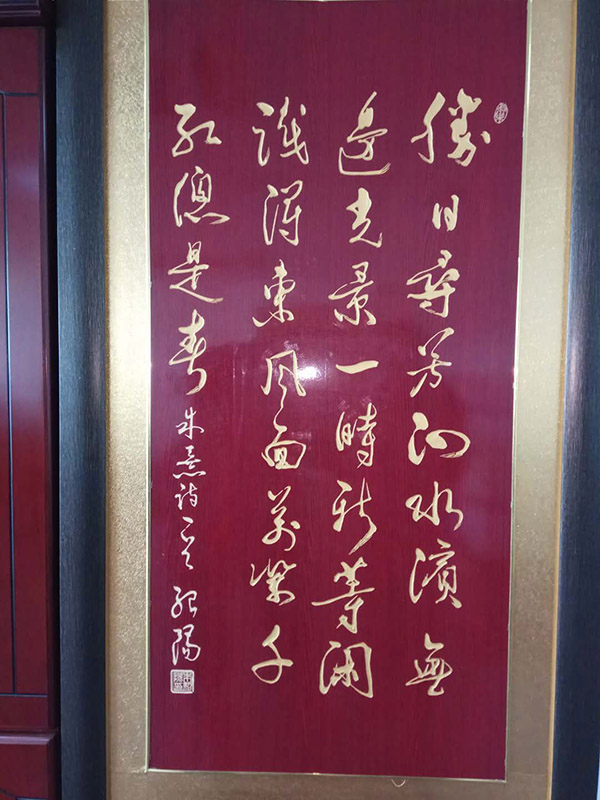 勝日尋芳泗水濱無
邊光景一時新等閑
識得東風面萬紫千
紅總是春 朱熹詩一首